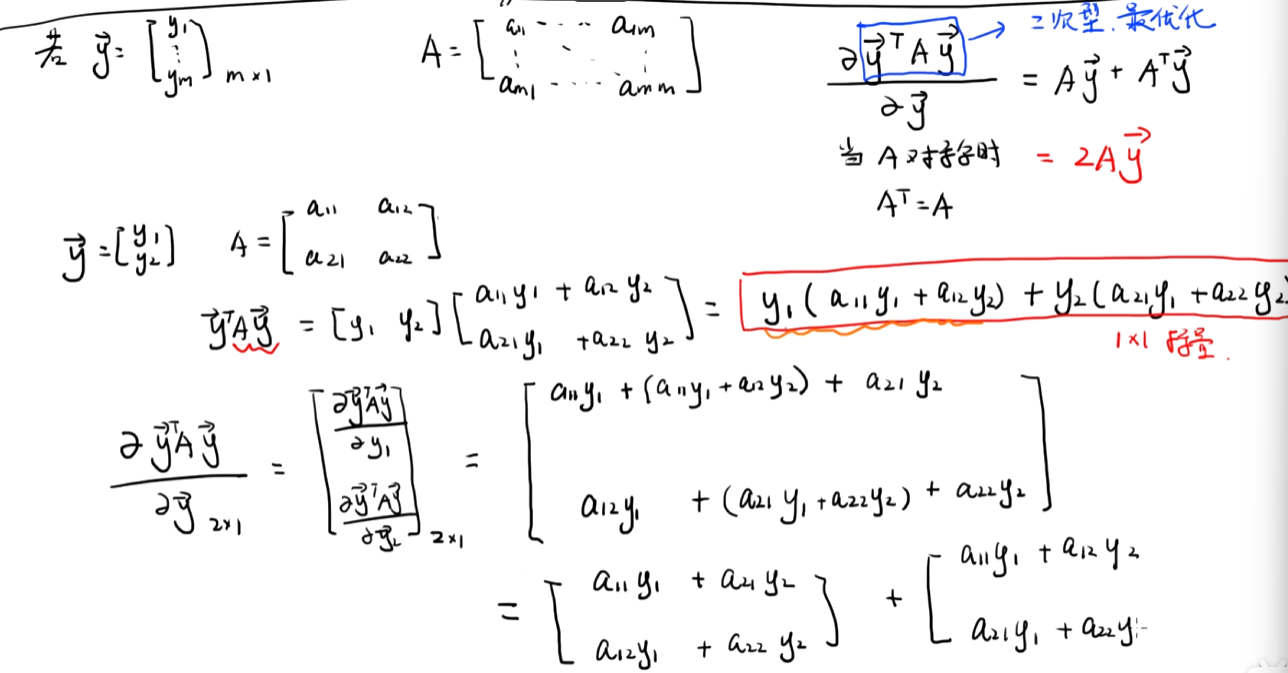 若 \vec{y} = [y₁ ⋮ yₘ]ₘₓ₁ A = [a₁₁ ···· a₁ₘ ⋮ ⋱ ⋮ aₘ₁ ····· aₘₘ] ∂\vec{y}ᵀA\vec{y} / ∂\vec{y} = A\vec{y} + Aᵀ\vec{y} → 二次型.最优化
当 A 对称时 = 2A\vec{y}
Aᵀ = A
\vec{y} = [y₁ y₂] A = [a₁₁ a₁₂ a₂₁ a₂₂]
\vec{y}ᵀA\vec{y} = [y₁ y₂] [a₁₁y₁ + a₁₂y₂ a₂₁y₁ + a₂₂y₂] = y₁(a₁₁y₁ + a₁₂y₂) + y₂(a₂₁y₁ + a₂₂y₂)
1×1 标量.
∂\vec{y}ᵀA\vec{y} / ∂\vec{y} ₂ₓ₁ = [∂\vec{y}ᵀA\vec{y} / ∂y₁ ∂\vec{y}ᵀA\vec{y} / ∂y₂]₂ₓ₁ = [a₁₁y₁ + (a₁₁y₁ + a₁₂y₂) + a₂₁y₂ a₁₂y₁ + (a₂₁y₁ + a₂₂y₂) + a₂₂y₂]
= [a₁₁y₁ + a₂₁y₂ a₁₂y₁ + a₂₂y₂] + [a₁₁y₁ + a₁₂y₂ a₂₁y₁ + a₂₂y